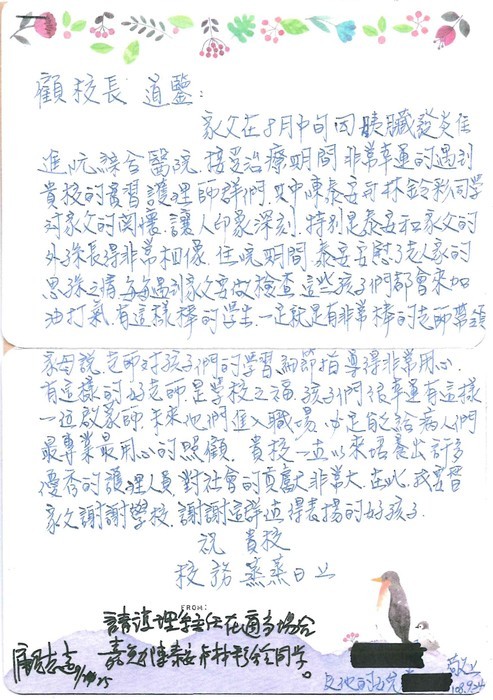 顧校長 道鑒：
家父在8月中旬因胰臟發炎住
進阮綜合醫院，接受治療期間，非常幸運的遇到
貴校的實習護理師群們，其中陳泰安和林鈴彩同學
對家父的關懷，讓人印象深刻，特別是泰安和家父的
外孫長得非常相像，住院期間，泰安安慰了老人家的
思孫之情，每每遇到家父要做檢查，這些孩子們都會來加
油打氣，有這樣棒的學生，一定就是有非常棒的老師帶領
家母說，老師對孩子們的學習細節指導得非常用心，
有這樣的好老師，是學校之福，孩子們很幸運有這樣
一位啟蒙師，未來他們進入職場，必定能給病人們
最專業最用心的照顧，貴校一直以來培養出許多
優秀的護理人員，對社會的貢獻非常大，在此，我要替
家父謝謝學校，謝謝這群值得表揚的好孩子。
祝 貴校
校務 蒸蒸日上
FROM:
請護理系主任在適當場合
嘉勉陳泰安和林
同學。
敬上
108.9.24